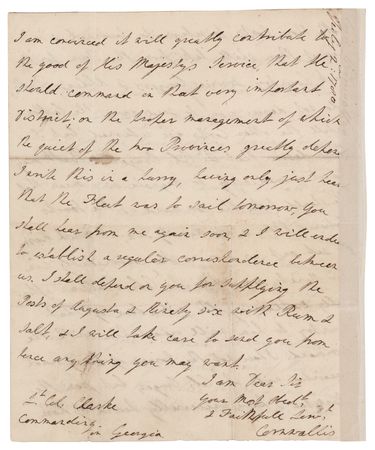 I am convinced it will greatly contribute to
the good of His Majestys Service, that He
should command in that very important
District; on the proper management of which
the quiet of the two Provinces greatly depend
I write this in a hurry, having only just hear
that the Fleet was to sail tomorrow. You
shall hear from me again soon, & I will endea
to establish a regular correspondence between
us. I shall depend on you for supplying the
Posts of Augusta & Ninety six with Rum &
Salt, & I will take care to send you from
hence any thing you may want.
I am Dear Sir
your Most Obedt
& Faithfull Servt
Cornwallis
Lt Col. Clarke
Commanding
in Georgia
1780